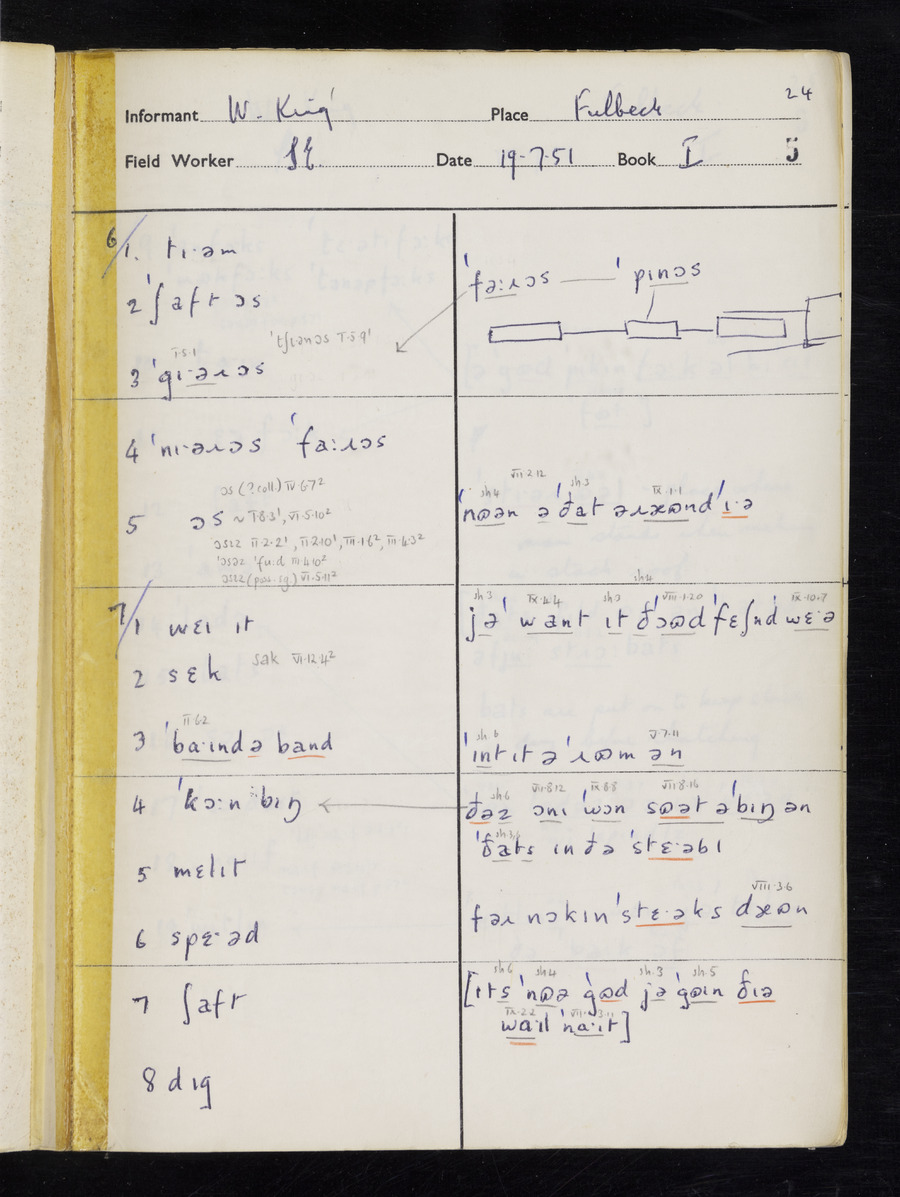 24
Informant W. King Place Fulbeck
Field Worker SE Date 19·7·51 Book I 5
6/1. tɪ·əm
2 ˈʃaftɔs
ˈfəːɹɔs — ˈpɪnɔs
ˈtʃɪənɔs I·5·9¹
I·5·1
3 ˈgɪ·əɹɔs
4 ˈnɪ·əɹɔs ˈfaːɹɔs
ɔs (?coll) IV·6·7²
5 ɔs ~ I·8·3¹, VI·5·10²
ɔsɪz II·2·2¹, II·2·10¹, III·1·6², III·4·3²
ˈɔsəz ˈfuːd III·4·10²
ɔsɪz (pos. sg) VI·5·11²
sh.4 VII·2·12 sh.3 IX·1·1
ˈnɷən ə ˈðat əɹӕɷndˈɪ·ə
7/1 wɛɪ ɪt
sh.3 IX·4·4 sh.3 sh.4 VIII·1·20 IX·10·7
jəˈ want ɪt ðˈɔɷdˈfɛʃnd wɛ·ə
2 sɛk sak VI·12·4²
II·6·2
3 ˈba·ɪndə band
sh.6 V·7·11
ˈɪnt ɪt əˈɹɷm ən
4 ˈkɔːnˈbɪŋ
sh.6 VII·8·12 IX·8·8 VII·8·14
ðəz ɔnɪ ˈwɔn sɷət əˈbɪŋ ən
sh.3
ˈðats ɪn ðə ˈstɛ·əbl
5 mɛlɪt
VIII·3·6
fəɹ nɔkɪnˈstɛ·əks dӕɷn
6 spɛ·əd
7 ʃaft
sh.6 sh.4 sh.3 sh.5
[ɪts ˈnɷə ˈgɷd jə ˈgɷɪn ðɪə
IX·2·2
wa·ɪl ˈna·ɪt]
8 dɪg